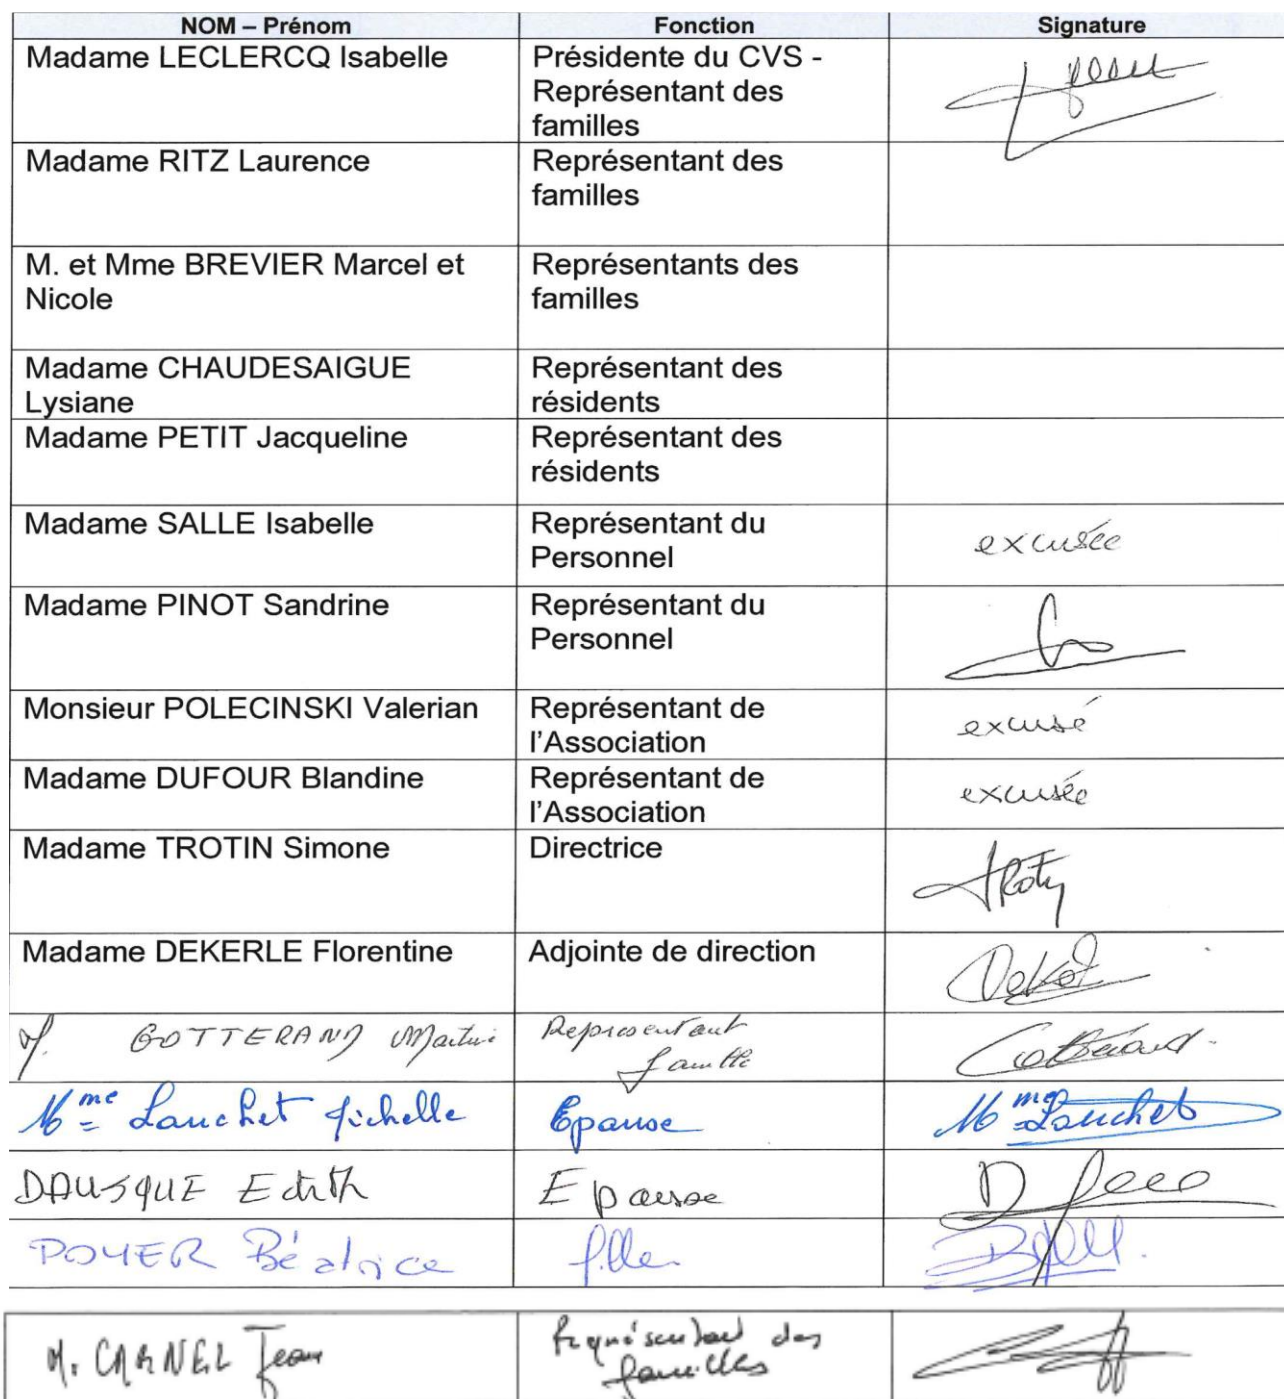 NOM – Prénom Fonction Signature
Madame LECLERCQ Isabelle Présidente du CVS -
Représentant des
familles
Madame RITZ Laurence Représentant des
familles
M. et Mme BREVIER Marcel et Représentants des
Nicole familles
Madame CHAUDESAIGUE Représentant des
Lysiane résidents
Madame PETIT Jacqueline Représentant des
résidents
Madame SALLE Isabelle Représentant du excusée
Personnel
Madame PINOT Sandrine Représentant du
Personnel
Monsieur POLECINSKI Valerian Représentant de excusé
l'Association
Madame DUFOUR Blandine Représentant de excusée
l'Association
Madame TROTIN Simone Directrice
Madame DEKERLE Florentine Adjointe de direction
GOTTERAND Représentant
famille
Mme Louchet Epouse Mme Louchet
DAUSQUE Edith Epouse
POYER Béatrice fille
M. CARNEL Jean Représentant des
familles